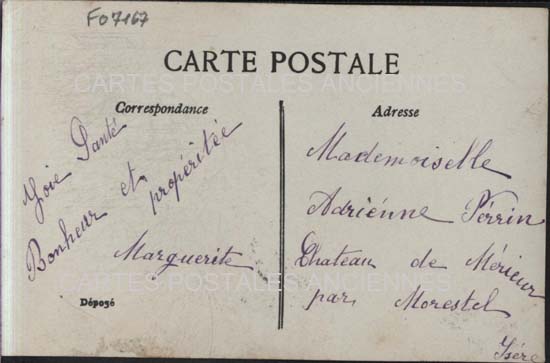 FO7167
CARTE POSTALE
CARTES POSTALES ANCIENNES
Correspondance
Joie Santé
Bonheur et propéritée
Marguerite
Déposé
Adresse
Mademoiselle
Adriénne Pérrin
Chateau de Mérieur
par Morestel
Isére
CARTES POSTALES ANCIENNES